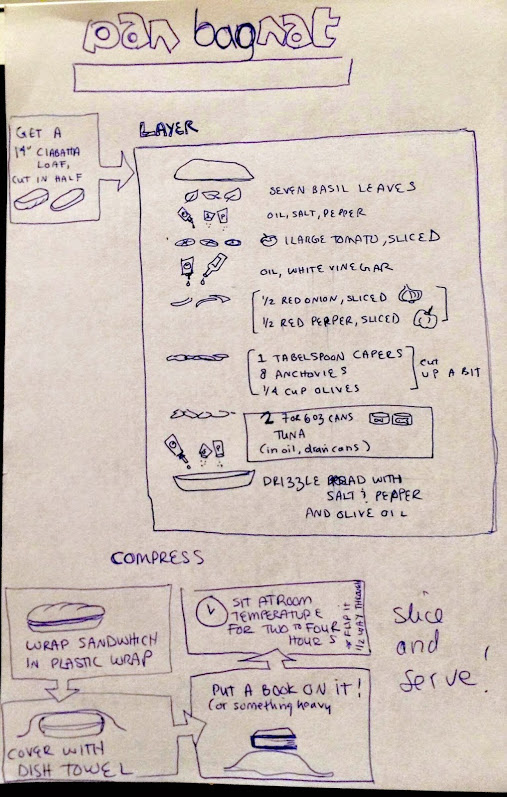 pan bagnat
GET A
14" CIABATTA
LOAF,
CUT IN HALF
LAYER
SEVEN BASIL LEAVES
OIL, SALT, PEPPER
1 LARGE TOMATO, SLICED
OIL, WHITE VINEGAR
1/2 RED ONION, SLICED
1/2 RED PEPPER, SLICED
1 TABELSPOON CAPERS
8 ANCHOVIES
1/4 CUP OLIVES
CUT
UP A BIT
2 7 OR 6 OZ CANS
TUNA
(in oil, drain cans)
DRIZZLE BREAD WITH
SALT & PEPPER
AND OLIVE OIL
COMPRESS
WRAP SANDWHICH
IN PLASTIC WRAP
COVER WITH
DISH TOWEL
PUT A BOOK ON IT!
(or something heavy
SIT AT ROOM
TEMPERATURE
FOR TWO TO FOUR
HOURS
* FLIP IT
1/2 WAY THROUGH
slice
and
serve!